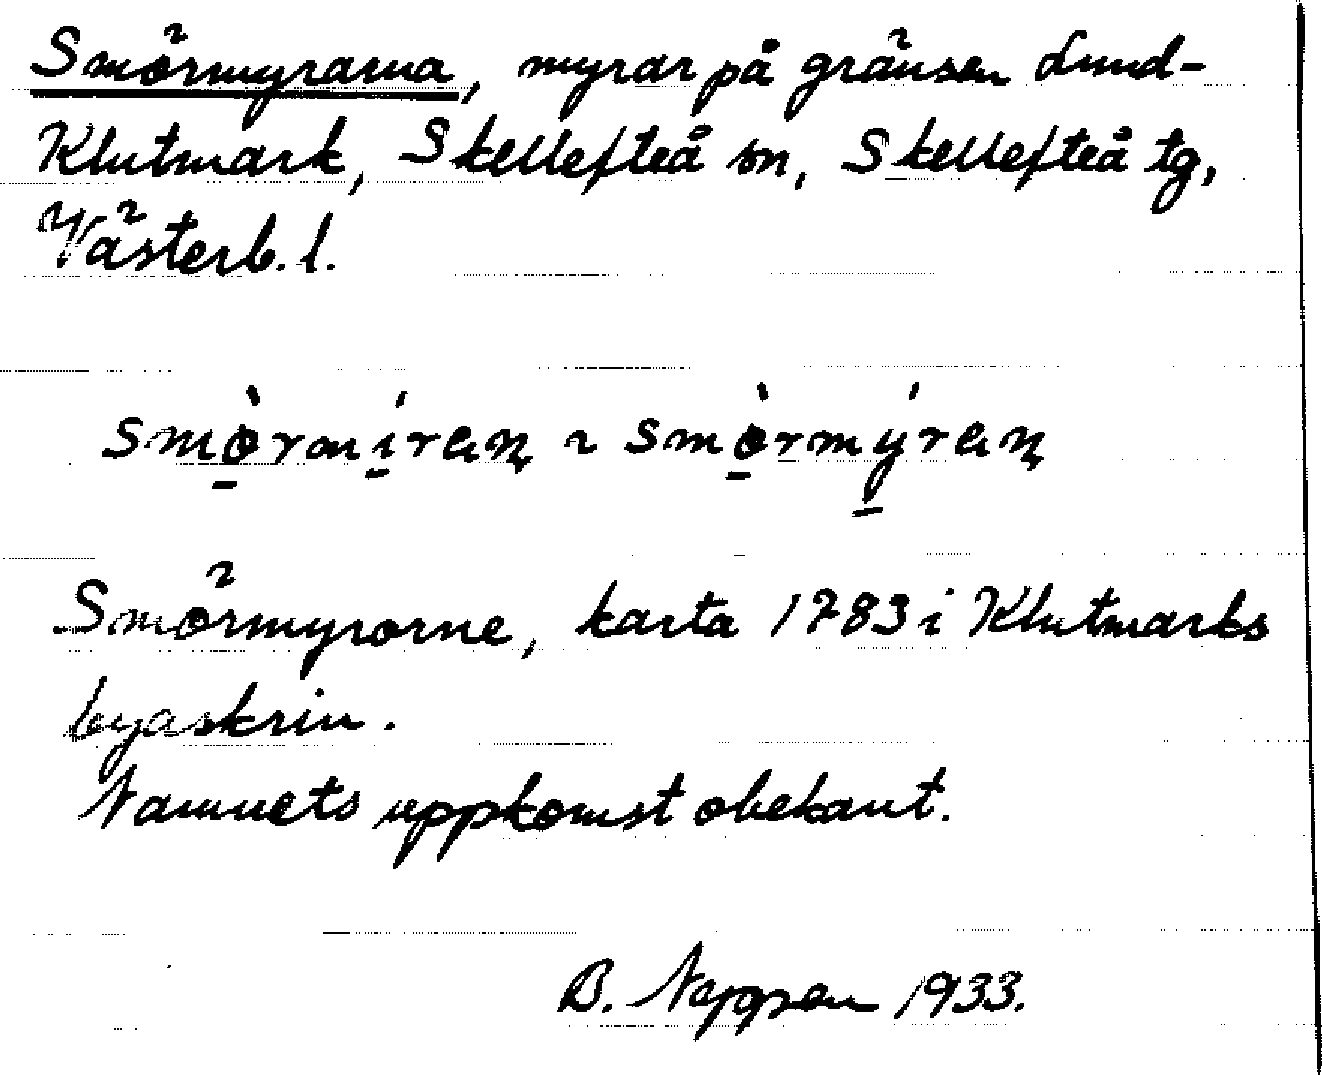 Smörmyrarna, myrar på gränsen Lund-
Klutmark, Skellefteå sn, Skellefteå tg,
Västerb. l.
smò̱rmí̱raṇ ~ smò̱rmý̱raṇ
Smörmyrorne, karta 1783 i Klutmarks
byaskrin.
Namnets uppkomst obekant.
B. 1933.